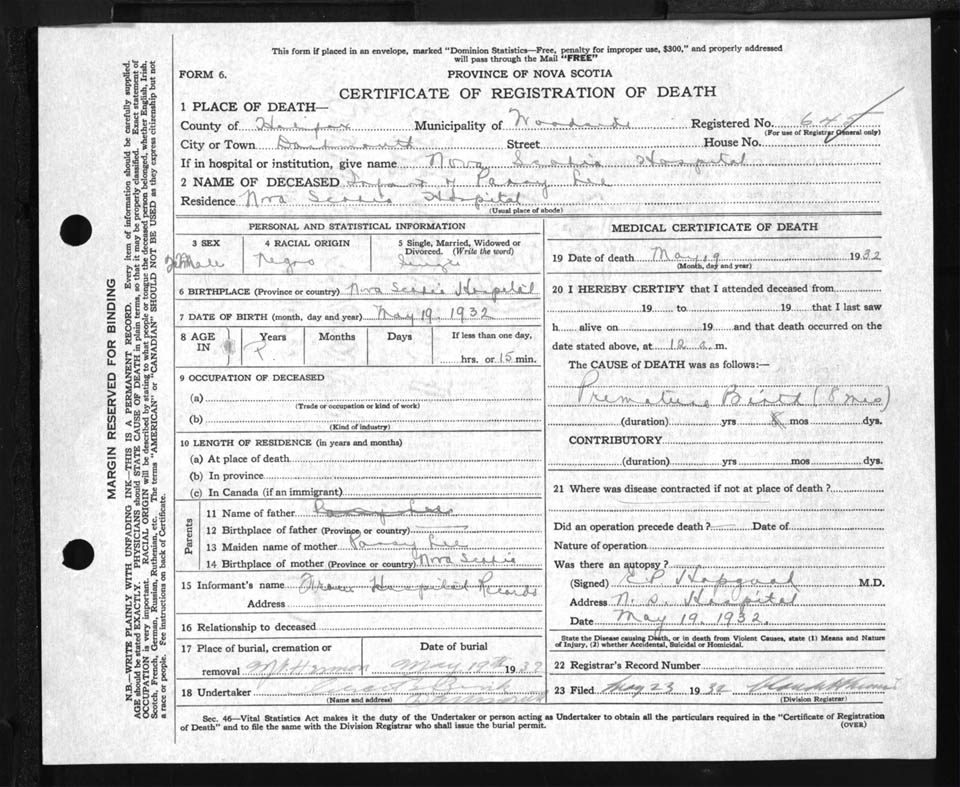 This form if placed in an envelope, marked "Dominion Statistics—Free, penalty for improper use, $300," and properly addressed
will pass through the Mail "FREE"
FORM 6.
PROVINCE OF NOVA SCOTIA
CERTIFICATE OF REGISTRATION OF DEATH
1 PLACE OF DEATH—
County of Halifax Municipality of Registered No.
(For use of Registrar General only)
City or Town Dartmouth Street House No.
If in hospital or institution, give name Nova Scotia Hospital
2 NAME OF DECEASED Infant of Pansy Lee
Residence Nova Scotia Hospital
(Usual place of abode)
PERSONAL AND STATISTICAL INFORMATION
3 SEX 4 RACIAL ORIGIN 5 Single, Married, Widowed or Divorced. (Write the word)
Female Negro Single
6 BIRTHPLACE (Province or country) Nova Scotia Hospital
7 DATE OF BIRTH (month, day and year) May 19. 1932
8 AGE IN Years Months Days If less than one day,
hrs. or 15 min.
9 OCCUPATION OF DECEASED
(a)
(Trade or occupation or kind of work)
(b)
(Kind of industry)
10 LENGTH OF RESIDENCE (in years and months)
(a) At place of death
(b) In province
(c) In Canada (if an immigrant)
Parents
11 Name of father
12 Birthplace of father (Province or country)
13 Maiden name of mother Pansy Lee
14 Birthplace of mother (Province or country) Nova Scotia
15 Informant's name From Hospital Records
Address
16 Relationship to deceased
17 Place of burial, cremation or Date of burial
removal Mt Hermon May 19th 1932
18 Undertaker
(Name and address) Dartmouth
MEDICAL CERTIFICATE OF DEATH
19 Date of death May 19 1932
(Month, day and year)
20 I HEREBY CERTIFY that I attended deceased from
19 to 19 that I last saw
h alive on 19 and that death occurred on the
date stated above, at 12 a.m.
The CAUSE of DEATH was as follows:—
Premature Birth (8 mos)
(duration) yrs mos dys.
CONTRIBUTORY
(duration) yrs mos dys.
21 Where was disease contracted if not at place of death?
Did an operation precede death? Date of
Nature of operation
Was there an autopsy?
(Signed) E P Hopgood M.D.
Address N. S. Hospital
Date May 19. 1932.
State the Disease causing Death, or in death from Violent Causes, state (1) Means and Nature
of Injury, (2) whether Accidental, Suicidal or Homicidal.
22 Registrar's Record Number
23 Filed May 23 1932
(Division Registrar)
Sec. 46—Vital Statistics Act makes it the duty of the Undertaker or person acting as Undertaker to obtain all the particulars required in the "Certificate of Registration
of Death" and to file the same with the Division Registrar who shall issue the burial permit.
(OVER)
MARGIN RESERVED FOR BINDING
N.B.—WRITE PLAINLY WITH UNFADING INK—THIS IS A PERMANENT RECORD. Every item of information should be carefully supplied.
AGE should be stated EXACTLY. PHYSICIANS should STATE CAUSE OF DEATH in plain terms, so that it may be properly classified. Exact statement of
OCCUPATION is very important. RACIAL ORIGIN will be described by stating to what people or tongue the deceased person belonged, whether English, Irish,
Scotch, French, German, Russian, Ruthenian, etc. The terms "AMERICAN" or "CANADIAN" SHOULD NOT BE USED as they express citizenship but not
a race or people. See instructions on back of Certificate.